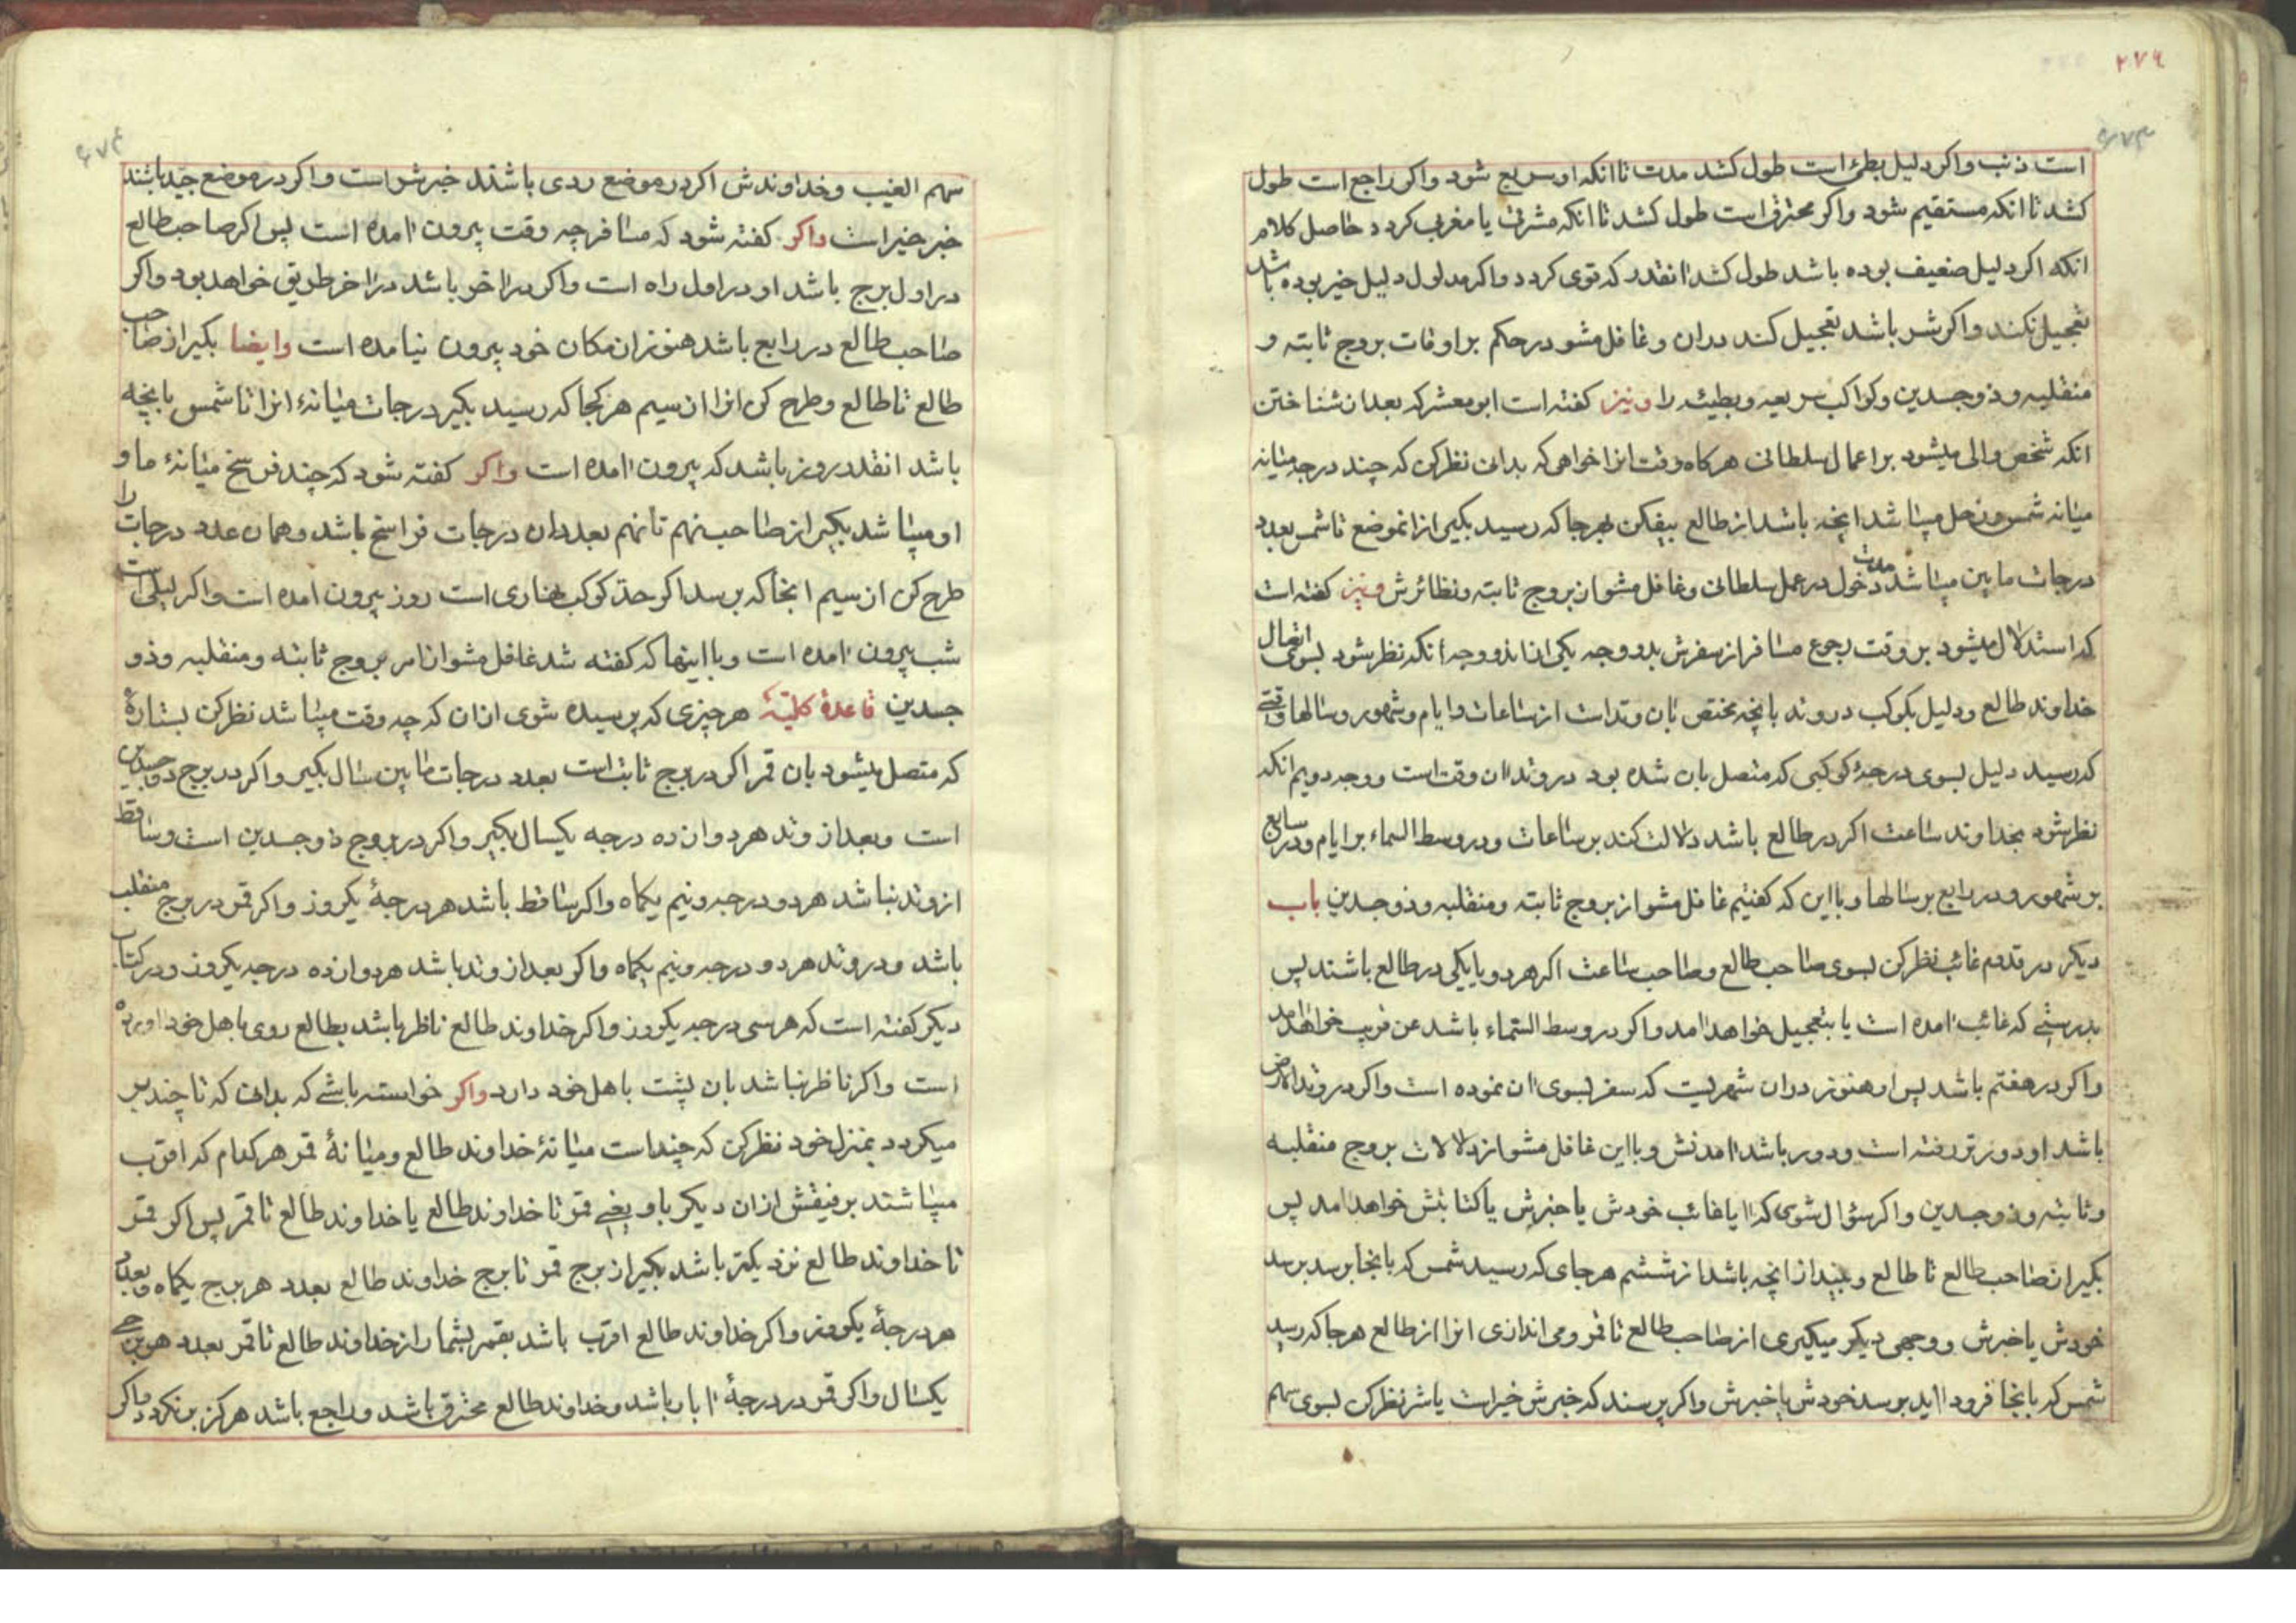 ۲۷۶
است ذنب واکر دلیل بطئ است طول کشد مدت تا انکه او سریع شود واکر راجع است طول
کشد تا انکه مستقیم شود واکر محترق است طول کشد تا انکه مشرقی یا مغربی کردد حاصل کلام
انکه اکر دلیل ضعیف بوده باشد طول کشد انقدر که قوی کردد واکر مدلول دلیل خیر بوده باشد
تعجیل نکند واکر شر باشد تعجیل کند دران وغافل مشو در حکم بر اوقات بروج ثابته و
منقلبه وذو جسدین وکواکب سریعه وبطیئه را ونیز کفته است ابو معشر که بعد از شناختن
انکه شخص والی میشود بر اعمال سلطانی هرکاه وقت انرا خواهی که بدانی نظر کن که چند درجه میانه
میانه شمس وزحل میباشد انچه باشد از طالع بیفکن بهر جا که رسید بکیر از انموضع تا شمس بعدد
درجات مابین میباشد مدت دخول در عمل سلطانی وغافل مشو از بروج ثابته ونظائرش ونیز کفته است
که استدلال میشود بر وقت رجوع مسافر از سفرش بدو وجه یکی از اندو وجه انکه نظر شود بسوی اتصال
خداوند طالع ودلیل بکوکب در وتد بانچه مختص بان وتد است از ساعات وایام وشهور وسالها وقتی
که رسید دلیل بسوی درجهٔ کوکبی که متصل بان شده بود در وتد ان وقت است ووجه دویم انکه
نظر شود بخداوند ساعت اکر در طالع باشد دلالت کند بر ساعات ودر وسط السماء بر ایام ودر سابع
بر شهور ودر رابع بر سالها وبا این که کفتیم غافل مشو از بروج ثابته ومنقلبه وذو جسدین باب
دیکر در قدوم غائب نظر کن بسوی صاحب طالع وصاحب ساعت اکر هردو یا یکی در طالع باشند پس
بدرستی که غائب امده است یا بتعجیل خواهد امد واکر در وسط السماء باشد عن قریب خواهد امد
واکر در هفتم باشد پس او هنوز دران شهریست که سفر بسوی ان نموده است واکر در وتد الارض
باشد او دورتر رفته است ودور باشد امدنش وبا این غافل مشو از دلالات بروج منقلبه
وثابته وذو جسدین واکر سؤال شوی که ایا غائب خودش یا خبرش یا کتابتش خواهد امد پس
بکیر از صاحب طالع تا طالع وبینداز انچه باشد از ششم هرجای که رسید شمس که بانجا برسد برسد
خودش یا خبرش ووجهی دیکر میکیری از صاحب طالع تا قمر ومی اندازی انرا از طالع هرجا که رسید
شمس که بانجا فرود اید برسد خودش یا خبرش واکر پرسند که خبرش خیر است یا شر نظر کن بسوی سهم
سهم الغیب وخداوندش اکر در موضع ردی باشند خبر شر است واکر در موضع جید باشند
خبر خیر است واکر کفته شود که مسافر چه وقت بیرون امده است پس اکر صاحب طالع
در اول برج باشد او در اول راه است واکر در اخر باشد در اخر طریق خواهد بود واکر
صاحب طالع در رابع باشد هنوز از مکان خود بیرون نیامده است وایضا بکیر از صاحب
طالع تا طالع وطرح کن انرا از سیم هر کجا که رسید بکیر درجات میانهٔ انرا تا شمس بانچه
باشد انقدر روز باشد که بیرون امده است واکر کفته شود که چند فرسخ میانهٔ ما و
او میباشد بکیر از صاحب نهم تا نهم بعدد ان درجات فراسخ باشد وهمان عدد درجات را
طرح کن از سیم انجا که برسد اکر حد کوکب نهاری است روز بیرون امده است واکر لیلی است
شب بیرون امده است وبا اینها که کفته شد غافل مشو از امر بروج ثابته ومنقلبه وذو
جسدین قاعدهٔ کلیهٔ هر چیزی که پرسیده شوی از ان که چه وقت میباشد نظر کن بستارهٔ
که متصل میشود بان قمر اکر در برج ثابت است بعدد درجات مابین سال بکیر واکر در برج ذو جسدین
است وبعد از وتد هر دوازده درجه یکسال بکیر واکر در بروج ذو جسدین است وساقط
از وتد نباشد هر دو درجه ونیم یکماه واکر ساقط باشد هر درجهٔ یکروز واکر قمر در برج منقلب
باشد ودر وتد هر دو درجه ونیم یکماه واکر بعد از وتد باشد هر دوازده درجه یکروز ودر کتاب
دیکر کفته است که هر سی درجه یکروز واکر خداوند طالع ناظر باشد بطالع روی باهل خود اورده
است واکر ناظر نباشد بان پشت باهل خود دارد واکر خواسته باشی که بدانی که تا چند بر
میکردد بمنزل خود نظر کن که چند است میانهٔ خداوند طالع ومیانهٔ قمر هر کدام که اقرب
میباشند برفیقش از ان دیکر باو یعنی قمر تا خداوند طالع یا خداوند طالع تا قمر پس اکر قمر
تا خداوند طالع نزدیکتر باشد بکیر از برج قمر تا برج خداوند طالع بعدد هر برج یکماه وبعدد
هر درجهٔ یکروز واکر خداوند طالع اقرب باشد بقمر بشمار از خداوند طالع تا قمر بعدد هر برجی
یکسال واکر قمر در درجهٔ ابار باشد وخداوند طالع محترق باشد وراجع باشد هرکز برنکردد واکر